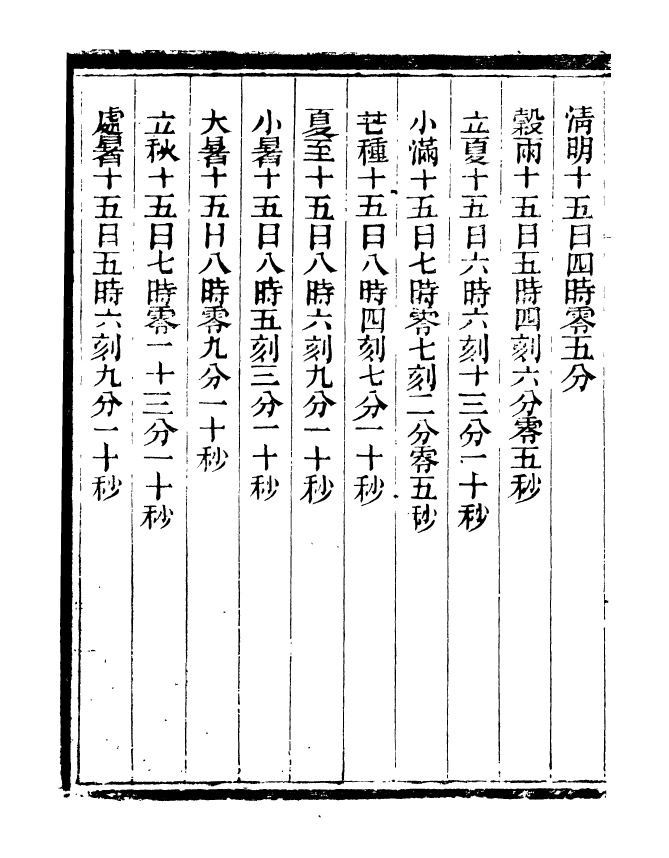 清明十五日四時零五分
穀雨十五日五時四刻六分零五秒
立夏十五日六時六刻十三分一十秒
小滿十五日七時零七刻二分零五秒
芒種十五日八時四刻七分一十秒
夏至十五日八時六刻九分一十秒
小暑十五日八時五刻三分一十秒
大暑十五日八時零九分一十秒
立秋十五日七時零一十三分一十秒
處暑十五日五時六刻九分一十秒